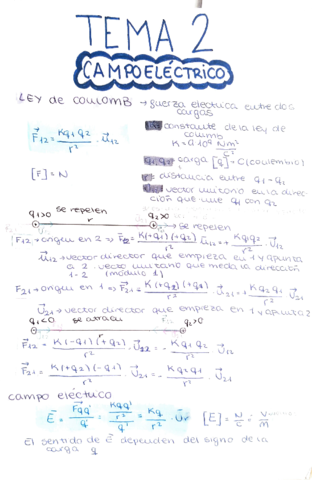 TEMA 2
CAMPO ELÉCTRICO
LEY de COULOMB → fuerza eléctrica entre dos
cargas
F⃗12 = Kq1q2/r² · u⃗12
constante de la ley de
coulomb
K = 9·10⁹ Nm²/C²
q1, q2: carga [q] = C (coulombio)
[F] = N
r = distancia entre q1 - q2
vector unitario en la direc-
ción que une q1 con q2
q1>0 se repelen q2>0
r
→ se repelen
F12 → origen en 2 ⇒ F⃗12 = K(+q1)(+q2)/r² · u⃗12 = + Kq1q2/r² · u⃗12
u⃗12 → vector director que empieza en 1 y apunta
a 2. vector unitario que mide la dirección
1-2 (módulo 1)
F21 → origen en 1 ⇒ F⃗21 = K(+q2)(+q1)/r² · u⃗21 = + Kq2q1/r² u⃗21
u⃗21 → vector director que empieza en 1 y apunta 2
q1<0 se atraen q2>0
r
F⃗12 = K(-q1)(+q2)/r² · u⃗12 = - Kq1q2/r² · u⃗12
F⃗21 = K(+q2)(-q1)/r² · u⃗21 = - Kq2q1/r² · u⃗21
campo eléctrico
E⃗ = F⃗qq'/q' = Kqq'/r²/q' = Kq/r² · u⃗r [E] = N/C = V/m
El sentido de E⃗ dependen del signo de la
carga q